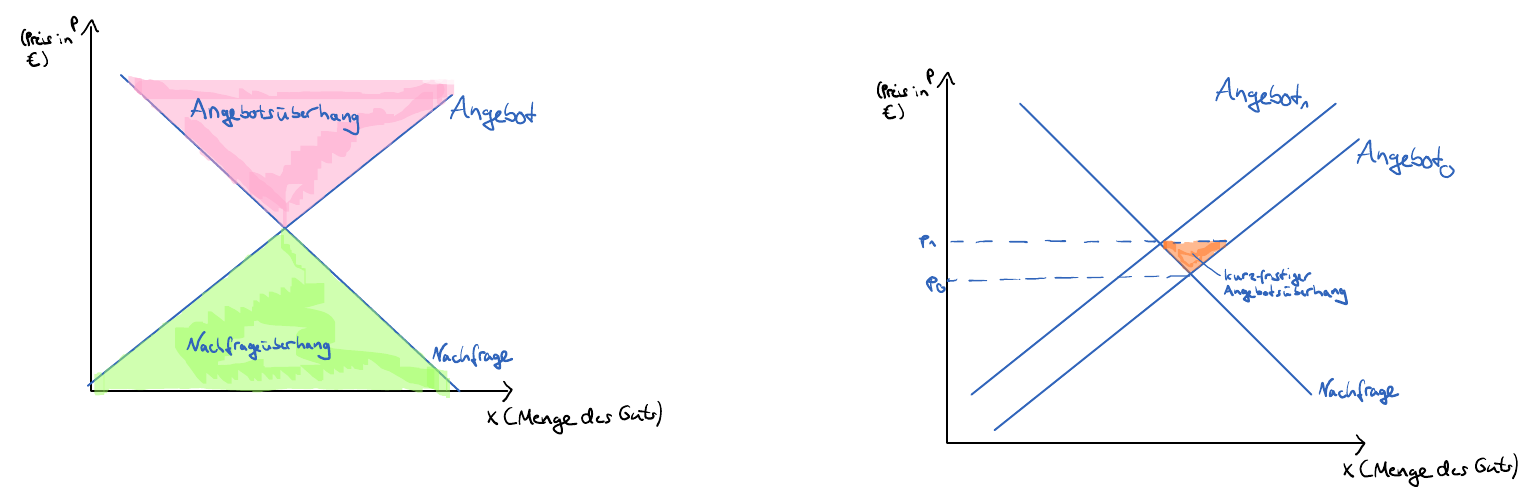 P
(Preis in
€)
Angebotsüberhang
Angebot
Nachfrageüberhang
Nachfrage
X (Menge des Guts)
P
(Preis in
€)
Angebot₁
Angebot₀
P₁
P₀
kurzfristiger
Angebotsüberhang
Nachfrage
X (Menge des Guts)